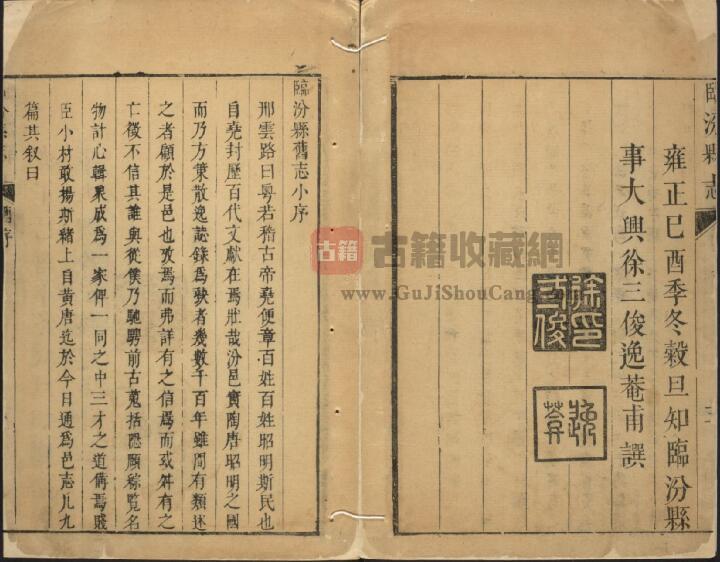 臨汾縣志
雍正己酉季冬穀旦知臨汾縣
事大興徐三俊逸菴甫譔
徐印
三俊
逸菴
臨汾縣舊志小序
邢雲路曰粵若稽古帝堯便章百姓百姓昭明斯民也
自堯封歷百代文獻在焉壯哉汾邑實陶唐昭明之國
而乃方策散逸誌錄爲
者幾數千百年雖間有類述
之者顧於是邑也攷焉而弗詳有之信焉而或舛有之
亡徵不信其誰與從僕乃馳騁前古蒐括隱顯綜覽名
物計心輯畧成爲一家俾一同之中三才之道備焉賤
臣小材敢揚斯緒上自黃唐迄於今日通爲邑志凡九
篇其叙曰
舊序
古籍
古籍收藏網
www.GuJiShouCang